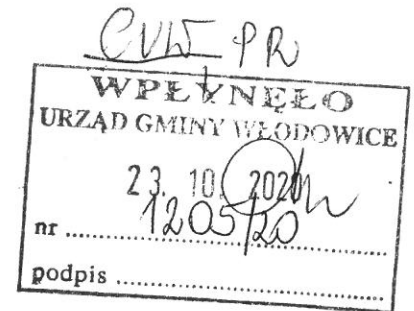 CUW PR
WPŁYNĘŁO
URZĄD GMINY WŁODOWICE
23. 10. 2020
nr 1205/20
podpis